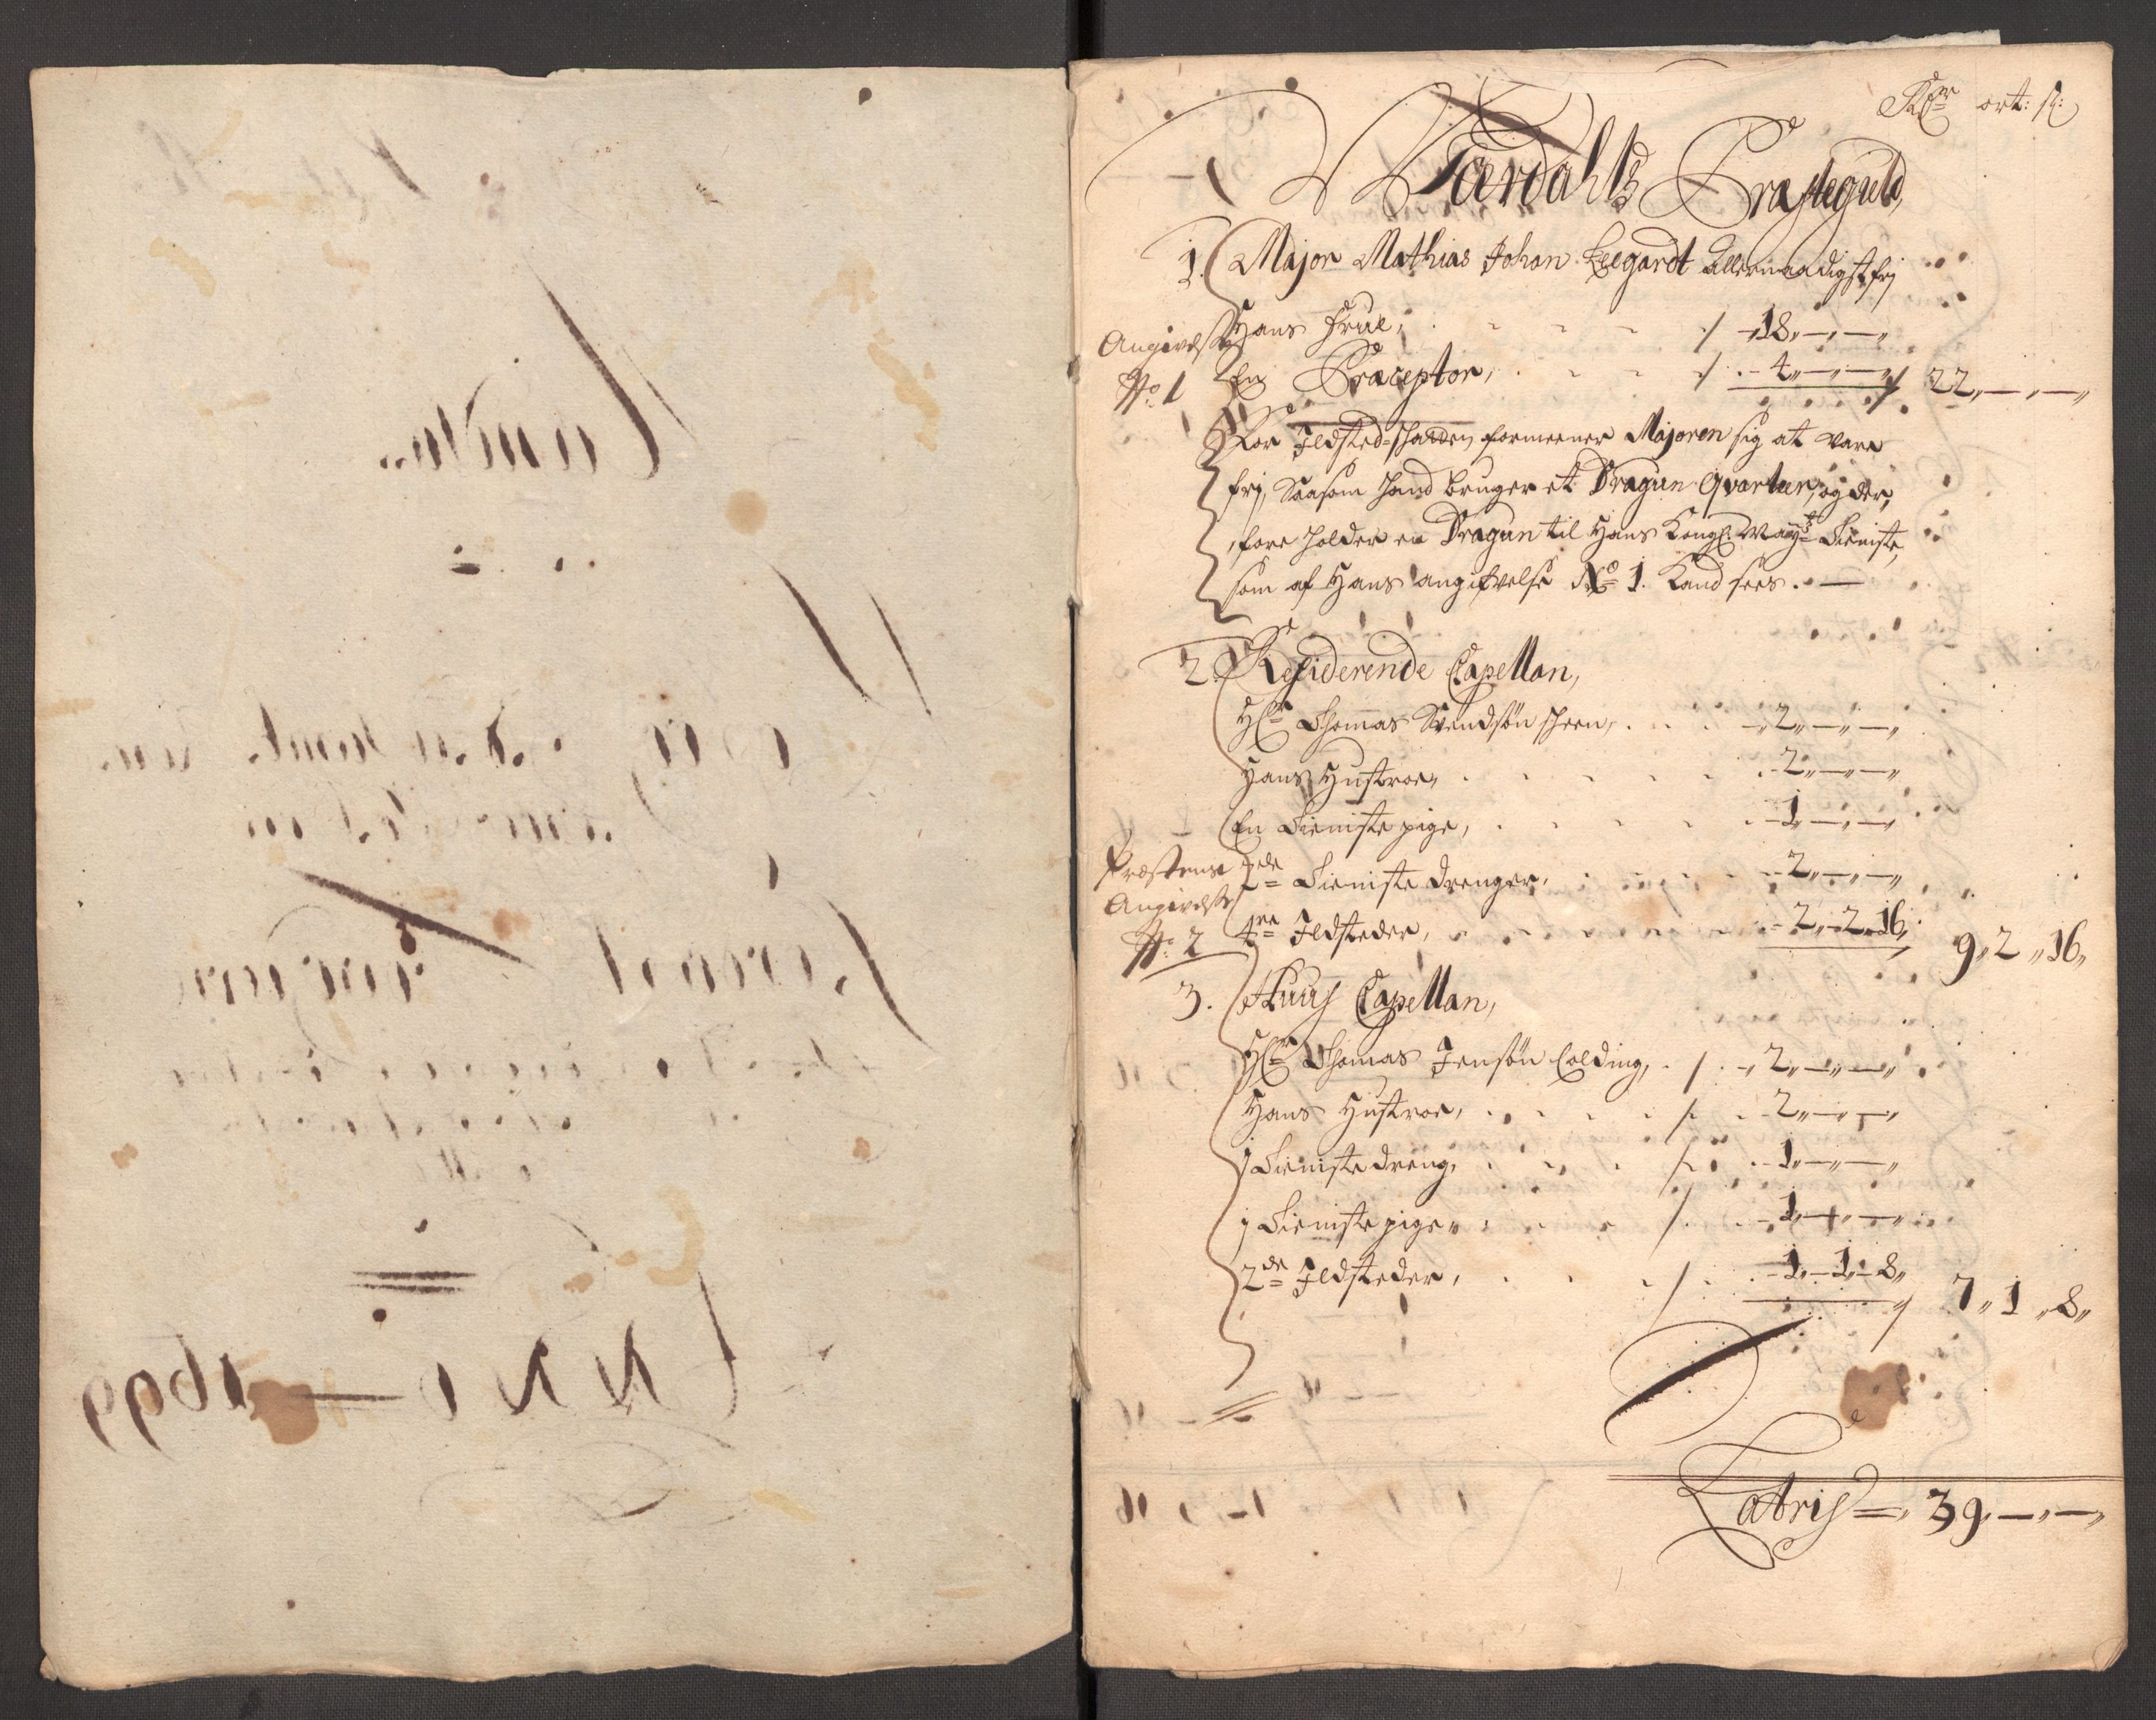 Rdr ort: sk:
Værdahls Præstegield,
1. Major Mathias Johan Leegardt Allernaadigst frj
Hans Frue, 18 ,, — ,, — ,,
Angivelse
No 1
En Præceptor, 4 ,, — ,, — ,, 22 ,, — ,, — ,,
For Ildsted-schatten formeener Majoren sig at være
frj, Saasom hand bruger et Dragun Qvarteer, og der,
fore holder en Dragun til Hans Kongl: May:ts Tieniste,
som af Hans angifvelse No 1. Kand sees. —
2. Residerende Capellan,
Hr Thomas Svendsøn 2 ,, — ,, — ,,
Hans Hustroe, 2 ,, — ,, — ,,
En Tieniste pige, 1 ,, — ,, — ,,
Præstens
Angivelse
No 2
2de Tieniste drenger, 2 ,, — ,, — ,,
4re Ildsteder, 2 ,, 2 ,, 16 ,, 9 ,, 2 ,, 16 ,,
3. Huus Capellan,
Hr Thomas Jensøn Colding, 2 ,, — ,, — ,,
Hans Hustroe, 2 ,, — ,, — ,,
1 Tieniste dreng, 1 ,, — ,, — ,,
1 Tieniste pige ,, 1 ,, — ,, — ,,
2de Ildsteder, 1 ,, 1 ,, 8 ,, 7 ,, 1 ,, 8 ,,
Latris = 39 ,, — ,, — ,,